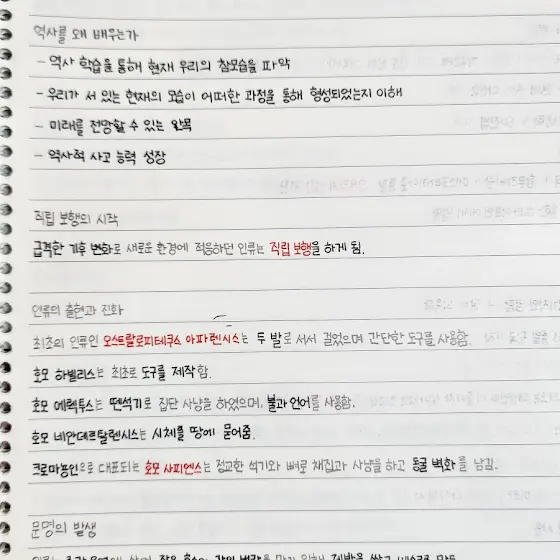 역사를 왜 배우는가
- 역사 학습을 통해 현재 우리의 참모습을 파악
- 우리가 서 있는 현재의 모습이 어떠한 과정을 통해 형성되었는지 이해
- 미래를 전망할 수 있는 안목
- 역사적 사고 능력 성장
직립 보행의 시작
급격한 기후 변화로 새로운 환경에 적응하던 인류는 직립 보행을 하게 됨.
인류의 출현과 진화
최초의 인류인 오스트랄로피테쿠스 아파렌시스는 두 발로 서서 걸었으며 간단한 도구를 사용함.
호모 하빌리스는 최초로 도구를 제작함.
호모 에렉투스는 뗀석기로 집단 사냥을 하였으며, 불과 언어를 사용함.
호모 네안데르탈렌시스는 시체를 땅에 묻어줌.
크로마뇽인으로 대표되는 호모 사피엔스는 정교한 석기와 뼈로 채집과 사냥을 하고 동굴 벽화를 남김.
문명의 발생